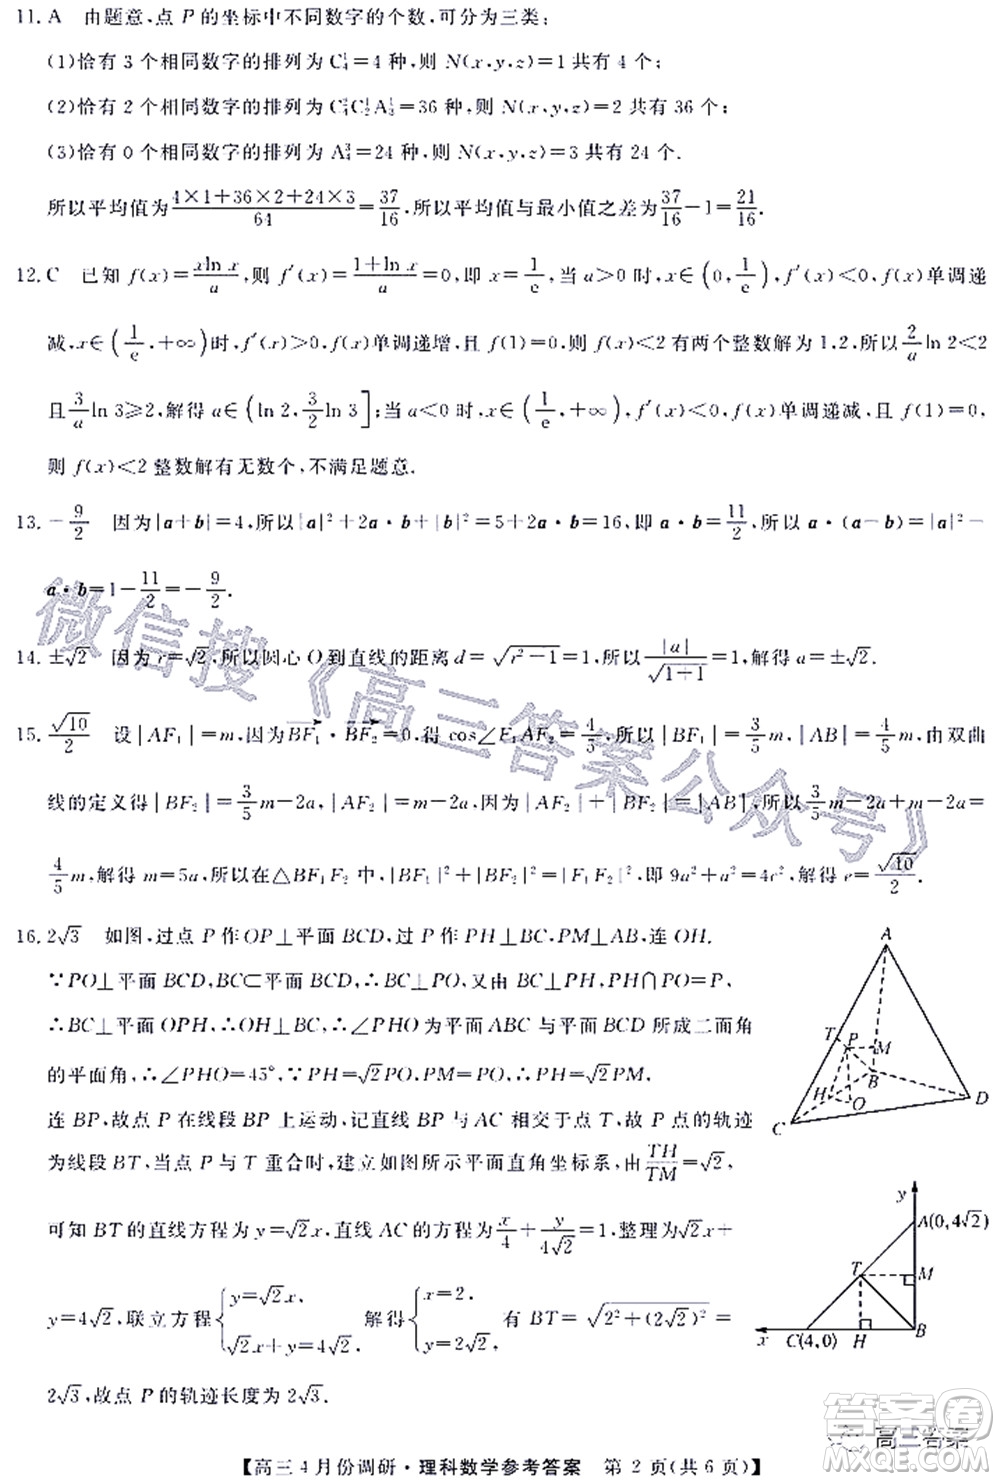 11. A 由题意,点 P 的坐标中不同数字的个数,可分为三类:
(1)恰有 3 个相同数字的排列为 C₄¹=4 种,则 N(x,y,z)=1 共有 4 个;
(2)恰有 2 个相同数字的排列为 C₄²C₂¹A₃¹=36 种,则 N(x,y,z)=2 共有 36 个;
(3)恰有 0 个相同数字的排列为 A₄³=24 种,则 N(x,y,z)=3 共有 24 个.
所以平均值为 (4×1+36×2+24×3)/64=37/16,所以平均值与最小值之差为 37/16-1=21/16.
12. C 已知 f(x)=xln x/a,则 f′(x)=(1+ln x)/a=0,即 x=1/e,当 a>0 时,x∈(0,1/e),f′(x)<0,f(x)单调递
减,x∈(1/e,+∞)时,f′(x)>0,f(x)单调递增,f(1)=0,所以 f(x)<2 有两个整数解为 1,2,所以 2/a ln 2<2
且 3/a ln 3≥2,解得 a∈(ln 2,3/2 ln 3];当 a<0 时,x∈(1/e,+∞),f′(x)<0,f(x)单调递减,且 f(1)=0,
则 f(x)<2 整数解有无数个,不满足题意.
13. -9/2 因为|a+b|=4,所以|a|²+2a·b+|b|²=5+2a·b=16,即 a·b=11/2,所以 a·(a-b)=|a|²-
a·b=1-11/2=-9/2.
14. ±√2 因为 r=√2,所以圆心 O 到直线的距离 d=√(r²-1)=1,所以 |a|/√(1+1)=1,解得 a=±√2.
15. √10/2 设|AF₁|=m,因为BF₁·BF₂=0,得 cos∠F₁AF₂=4/5,所以|BF₁|=3/5 m,|AB|=4/5 m,由双曲
线的定义得|BF₂|=3/5 m-2a,|AF₂|=m-2a,因为|AF₂|+|BF₂|=|AB|,所以 3/5 m-2a+m-2a=
4/5 m,解得 m=5a,所以在△BF₁F₂中,|BF₁|²+|BF₂|²=|F₁F₂|²,即 9a²+a²=4c²,解得 e=√10/2.
16. 2√3 如图,过点 P 作 OP⊥平面 BCD,过 P 作 PH⊥BC,PM⊥AB,连 OH.
∵PO⊥平面 BCD,BC⊂平面 BCD,∴BC⊥PO,又由 BC⊥PH,PH∩PO=P,
∴BC⊥平面 OPH,∴OH⊥BC,∴∠PHO 为平面 ABC 与平面 BCD 所成二面角
的平面角,∴∠PHO=45°,∴PH=√2PO,PM=PO,∴PH=√2PM,
连 BP,故点 P 在线段 BP 上运动,记直线 BP 与 AC 相交于点 T,故 P 点的轨迹
为线段 BT,当点 P 与 T 重合时,建立如图所示平面直角坐标系,由 TH/TM=√2,
可知 BT 的直线方程为 y=√2x,直线 AC 的方程为 x/4+y/4√2=1,整理为√2x+
y=4√2,联立方程{y=√2x, √2x+y=4√2, 解得{x=2, y=2√2, 有 BT=√(2²+(2√2)²)=
2√3,故点 P 的轨迹长度为 2√3.
A
T
P
M
H
B
O
C
D
y
A(0,4√2)
T
M
x
C(4,0)
H
B
微信搜《高三答案公众号》
答案圈
高三答案
【高三 4 月份调研·理科数学参考答案 第 2 页(共 6 页)】